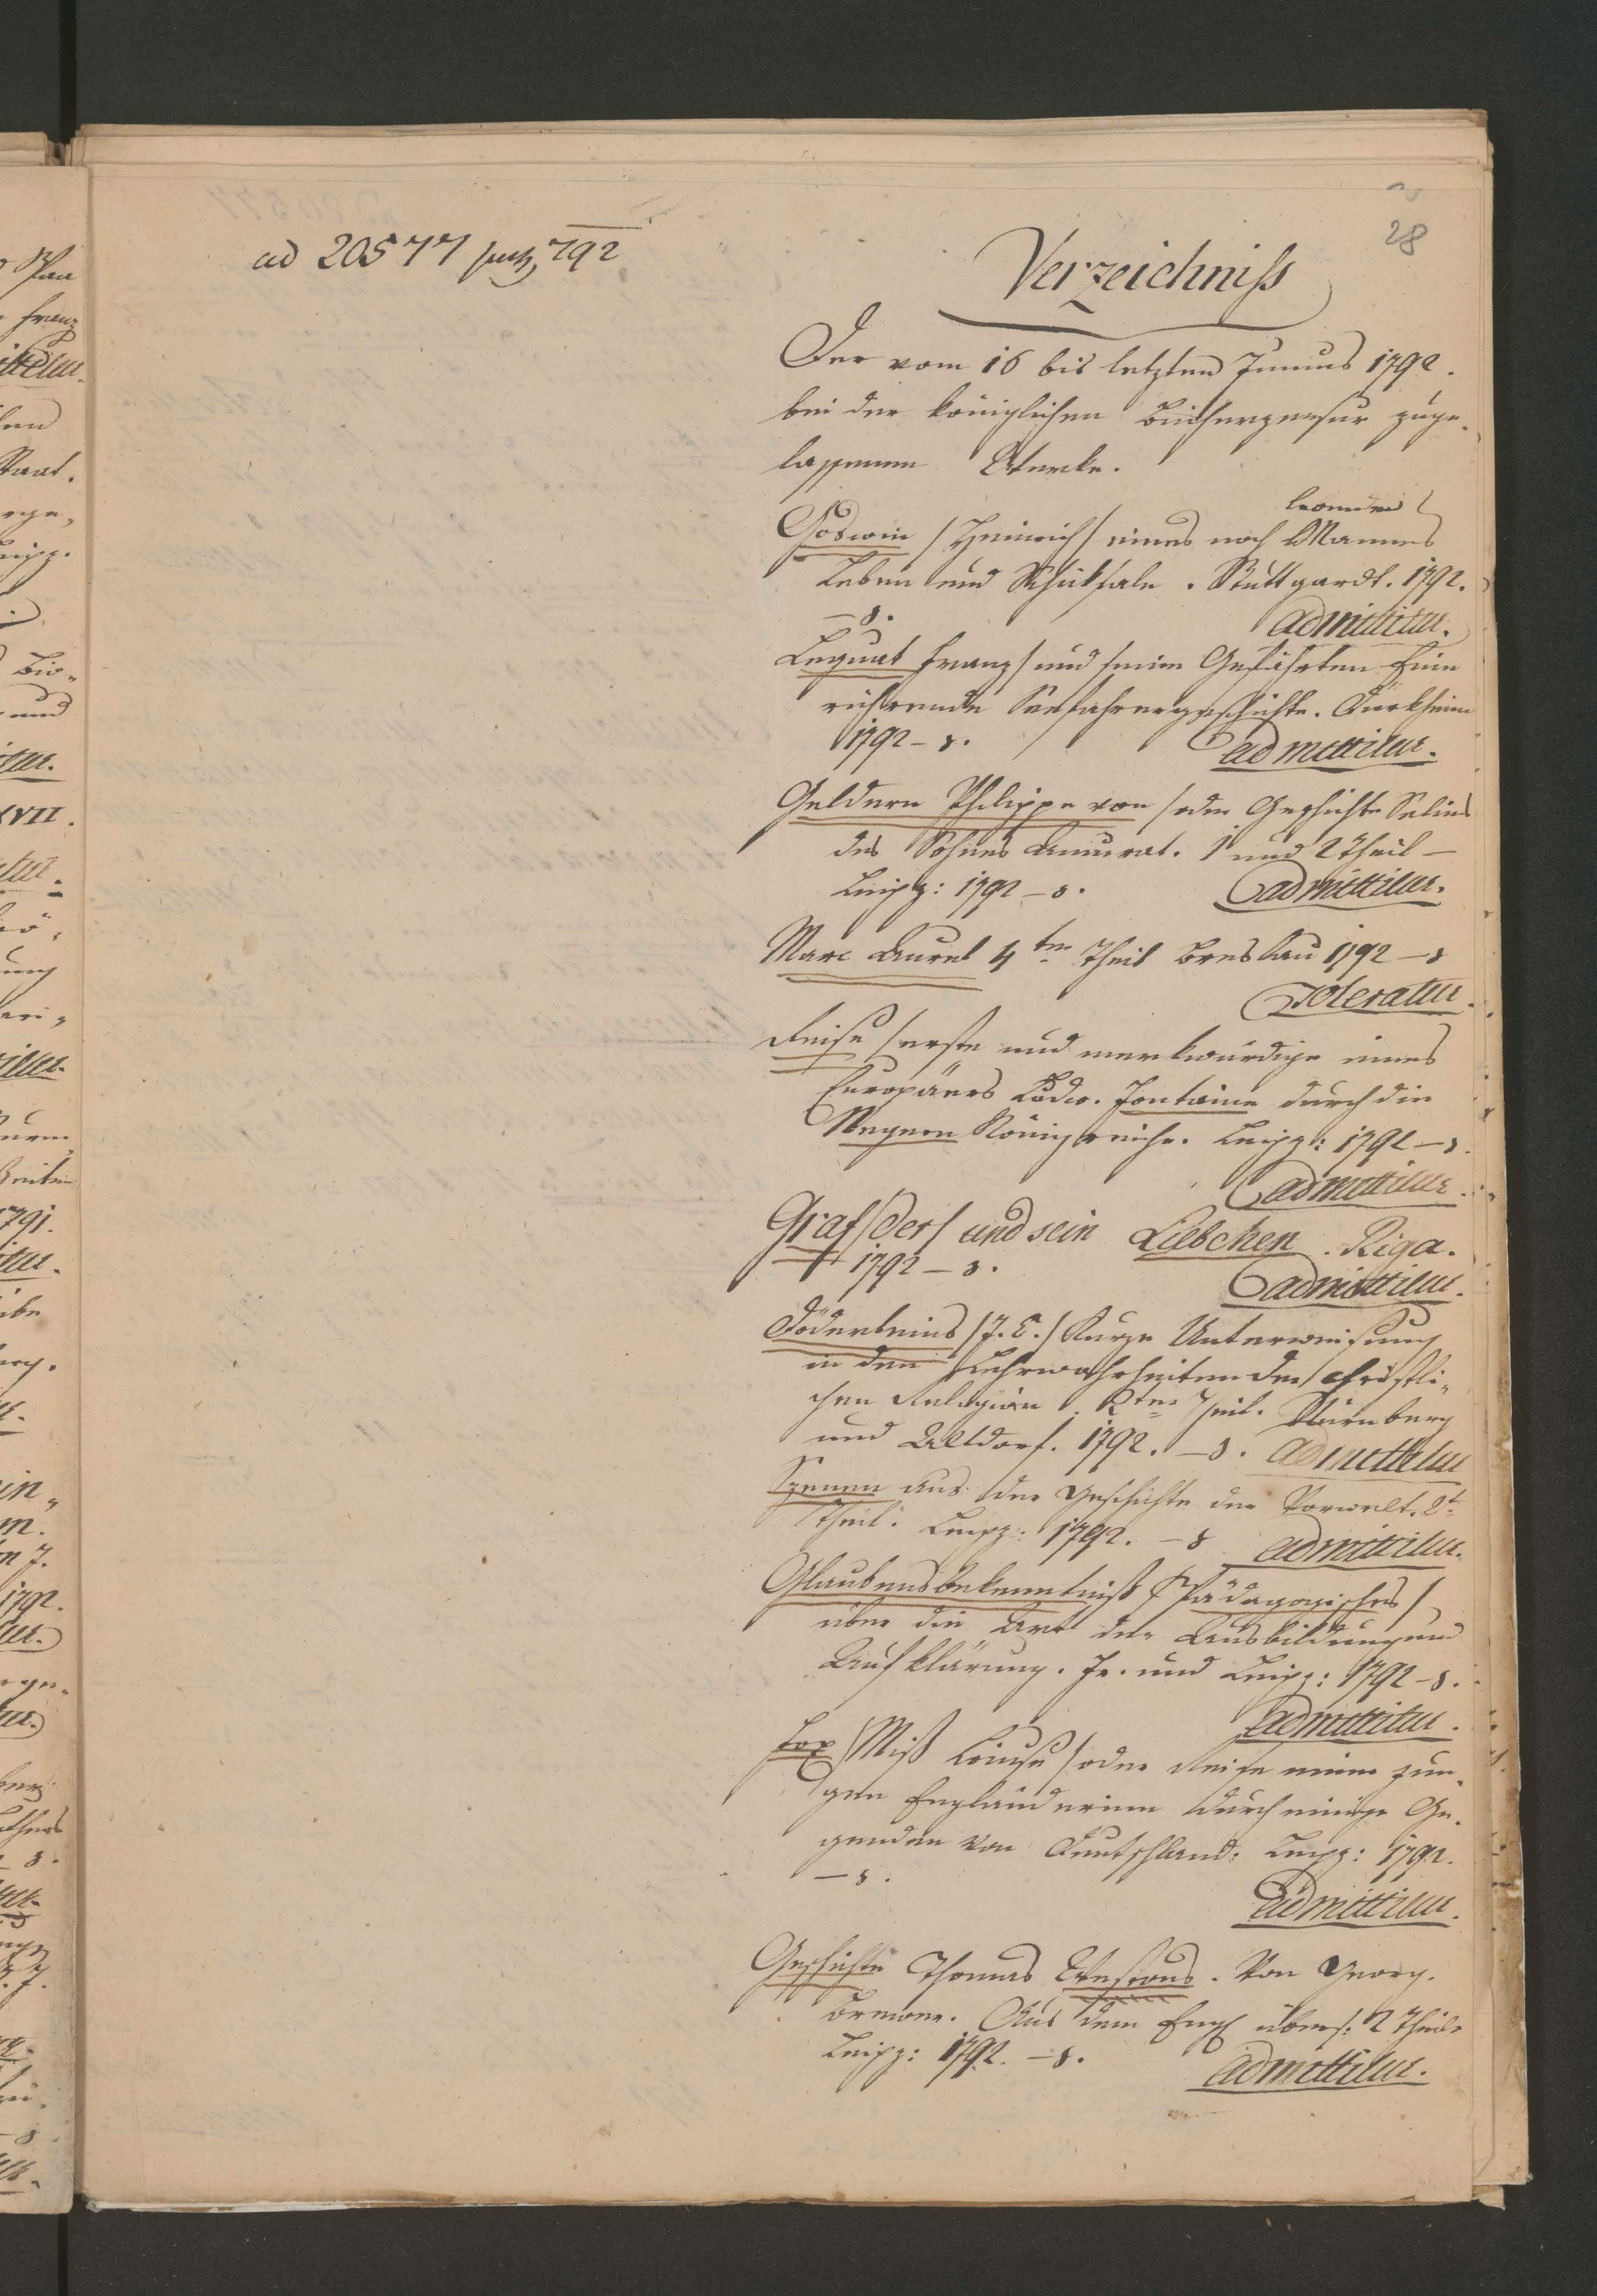 28
ad 20577 792
Verzeichniss
Der vom 16 bis letzten Junius 1792.
bei der königlichen Bücherzensur zuge-
lassenen Werke.
Godwin /Heinrich/ eines noch lebenden Mannes
Leben und Schiksale. Stuttgardt. 1792.
– 8. admittitur.
Leguat Franz/ und seine Gefährten Eine
rührende Seefahrergeschichte. Türkheim
1792 – 8. admittitur.
Geldern Philippe von /oder Geschichte Selims
des Sohnes Amurat. 1 und 2 Theil –
Leipz: 1792 – 8. admittitur.
Marc Aurel 4ter Theil Breslau 1792 – 8
Toleratur.
Reise /erste und merkwürdige eines
Europäers Ludw. Fontaine durch die
Negern Königreiche. Leipz: 1792 – 8.
admittitur.
Graf /der/ und sein Liebchen. Riga.
1792 – 8. admittitur.
Döderleins /J. C./ Kurze Unterweisung
in den Lehrwahrheiten der christli-
chen Religion. 2ter Theil. Nürnberg
und Altdorf. 1792. – 8. admittitur
Szenen aus der Geschichte der Vorwelt. 2t
Theil. Leipz: 1792. – 8 admittitur.
Glaubensbekenntniß /Pädagogisches/
über die Art der Ausbildung und
Aufklärung. Fr. und Leipz: 1792 – 8.
admittitur.
Fox /Miß Louise/ oder Reise einer jun-
gen Engländerinn durch einige Ge-
genden von Deutschland: Leipz: 1792.
– 8. admittitur.
Geschichte Thomas Westons. Von Georg.
Brewer. Aus dem Engl übers: 2 Theile
Leipz: 1792. – 8. admittitur.